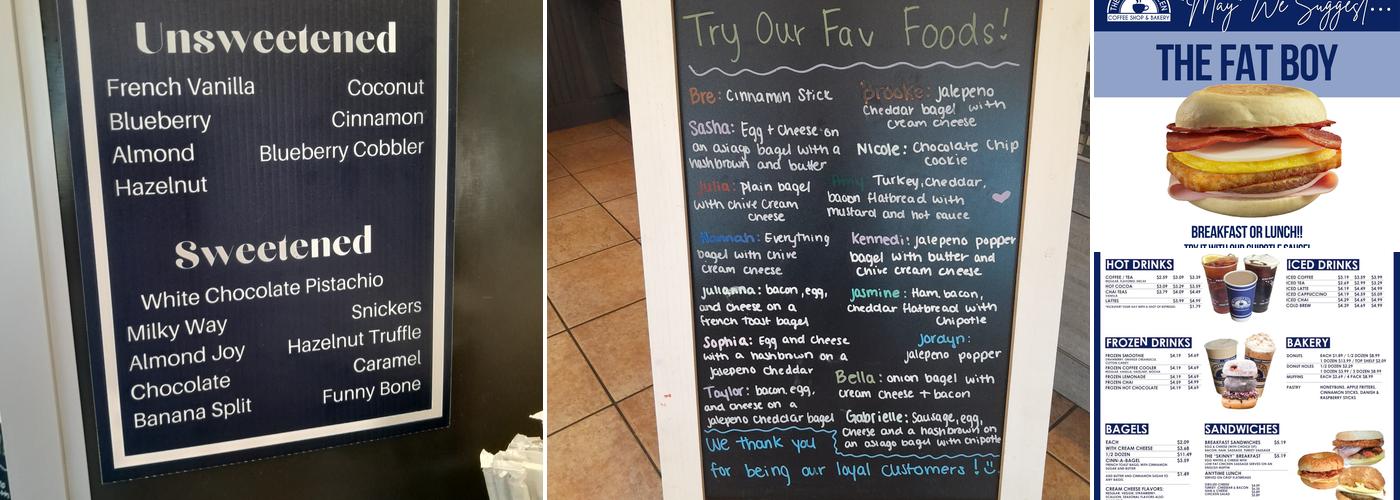 Unsweetened
French Vanilla
Coconut
Blueberry
Cinnamon
Almond
Blueberry Cobbler
Hazelnut
Sweetened
White Chocolate Pistachio
Milky Way
Snickers
Almond Joy
Hazelnut Truffle
Chocolate
Caramel
Banana Split
Funny Bone
Try Our Fav Foods!
Bre: Cinnamon Stick
Sasha: Egg + Cheese on
an asiago bagel with a
hashbrown and butter
Julia: plain bagel
with chive cream
cheese
Hannah: Everything
bagel with chive
cream cheese
Julianna: bacon, egg,
and cheese on a
french toast bagel
Sophia: Egg and cheese
with a hashbrown on a
jalepeno cheddar
Taylor: bacon, egg,
and cheese on a
jalepeno cheddar bagel
Brooke: jalepeno
cheddar bagel with
cream cheese
Nicole: Chocolate Chip
cookie
Amy Turkey, cheddar,
bacon flatbread with
mustard and hot sauce
Kennedi: jalepeno popper
bagel with butter and
chive cream cheese
Jasmine: Ham, bacon,
cheddar flatbread with
Chipotle
Jordyn:
jalepeno popper
Bella: onion bagel with
cream cheese + bacon
Gabrielle: Sausage, egg,
cheese and a hashbrown on
an asiago bagel with chipotle
We thank you
for being our loyal customers !
COFFEE SHOP & BAKERY
"May" We Suggest...
THE FAT BOY
BREAKFAST OR LUNCH!!
HOT DRINKS
COFFEE / TEA $2.59 $3.09 $3.39
HOT COCOA $3.09 $3.29 $3.79
CHAI TEAS $3.79 $4.09 $4.49
LATTES $3.99 $4.99
$1.79
ICED DRINKS
ICED COFFEE $3.19 $3.59 $3.99
ICED TEA $2.69 $2.99 $3.29
ICED LATTE $4.19 $4.49 $4.99
ICED CAPPUCCINO $4.19 $4.59 $5.09
ICED CHAI $4.29 $4.69 $4.99
COLD BREW $4.29 $4.69 $4.99
FROZEN DRINKS
FROZEN SMOOTHIE $4.19 $4.69
FROZEN COFFEE COOLER $4.19 $4.69
FROZEN LEMONADE $4.19 $4.69
FROZEN CHAI $4.59 $4.99
FROZEN HOT CHOCOLATE $4.19 $4.69
BAKERY
DONUTS EACH $1.89 / 1/2 DOZEN $8.99
1 DOZEN $13.99 / TOP SHELF $2.09
DONUT HOLES 1/2 DOZEN $2.29
1 DOZEN $3.99 / 2 DOZEN $8.99
MUFFINS EACH $2.69 / 4 PACK $8.99
PASTRY HONEYBUNS, APPLE FRITTERS,
CINNAMON STICKS, DANISH &
RASPBERRY STICKS
BAGELS
EACH $2.09
WITH CREAM CHEESE $3.68
1/2 DOZEN $11.49
CINN-A-BAGEL $3.59
$1.49
CREAM CHEESE FLAVORS:
SANDWICHES
BREAKFAST SANDWICHES $5.19
THE "SKINNY" BREAKFAST $5.19
ANYTIME LUNCH
SERVED ON CRISP FLATBREADS